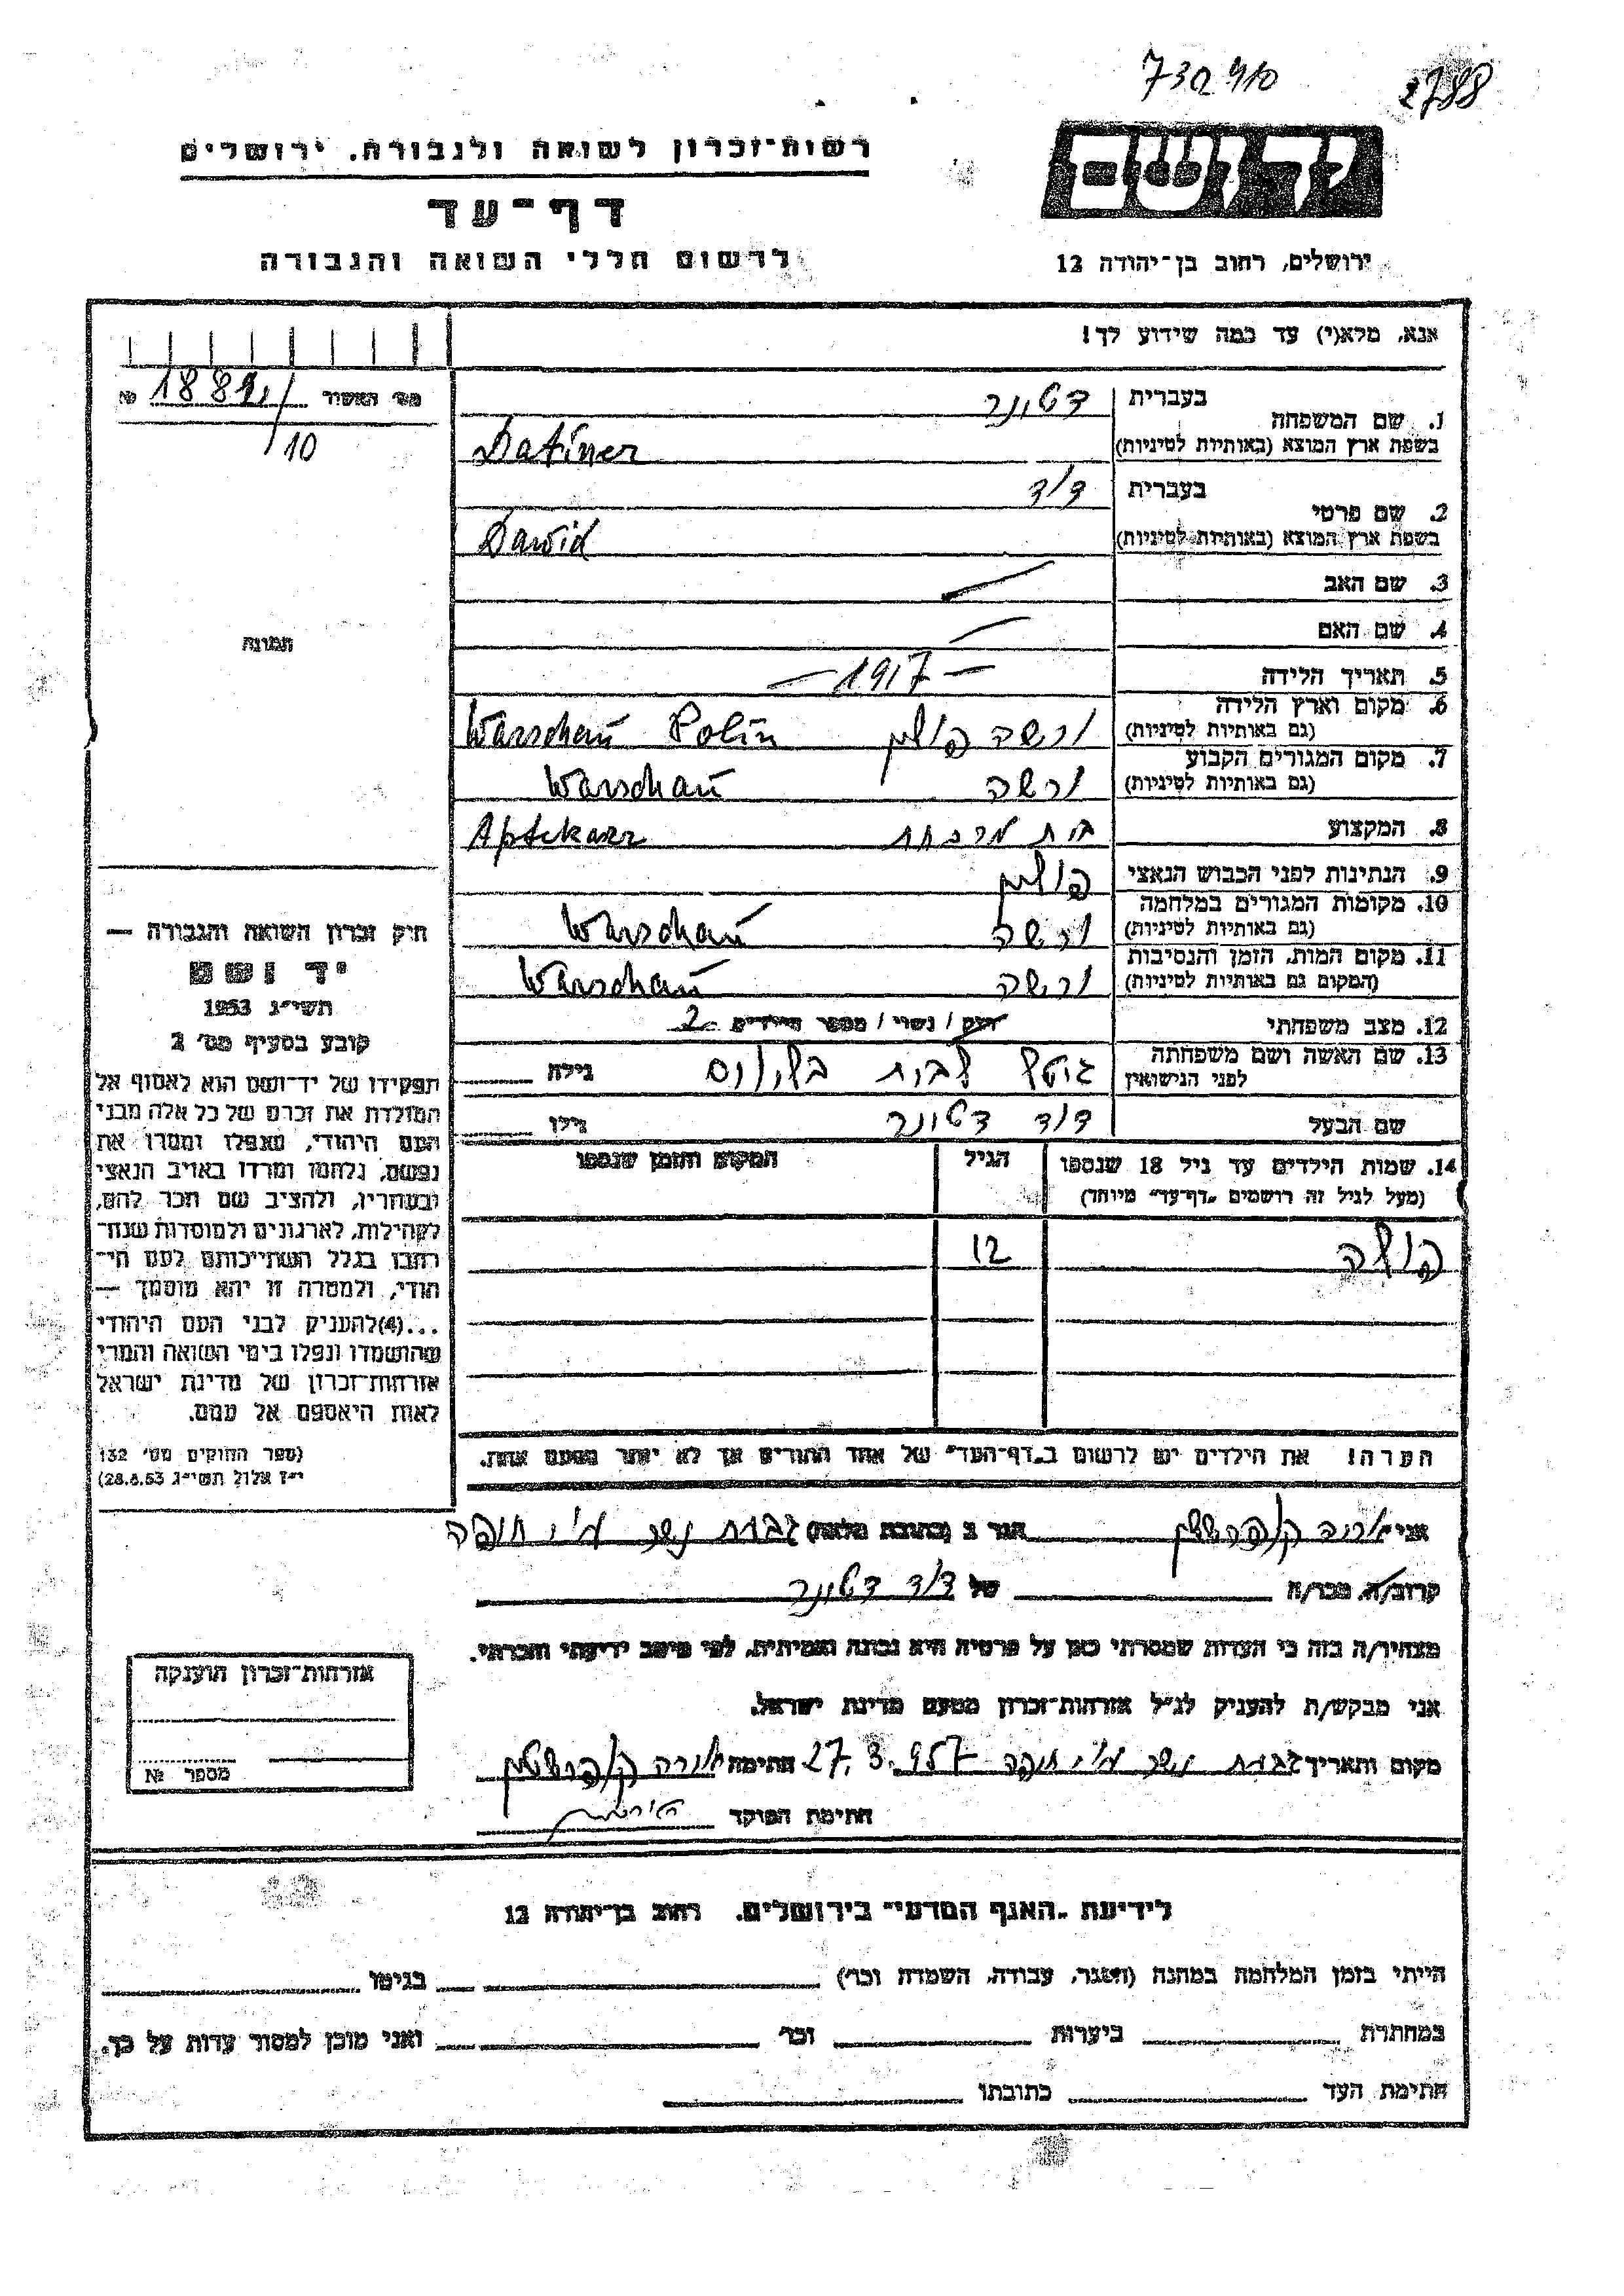 730410 2788
יד ושם
רשות־זכרון לשואה ולגבורה, ירושלים
דף־עד
לרשום חללי השואה והגבורה
ירושלים, רחוב בן־יהודה 12
אנא, מלא(י) עד כמה שידוע לך!
מס׳ האשור 188 № 
10
1. שם המשפחה
בעברית דטינר
בשפת ארץ המוצא (באותיות לטיניות) Datiner
2. שם פרטי
בעברית דוד
בשפת ארץ המוצא (באותיות לטיניות) Dawid
3. שם האב —
4. שם האם —
תמונה
5. תאריך הלידה — 1917 —
6. מקום וארץ הלידה
(גם באותיות לטיניות) ורשה פולין Warschaŭ Polin
7. מקום המגורים הקבוע
(גם באותיות לטיניות) ורשה Warschaŭ
8. המקצוע בית מרקחת Aptekarz
9. הנתינות לפני הכבוש הנאצי פולין
10. מקומות המגורים במלחמה
(גם באותיות לטיניות) ורשה Warschaŭ
11. מקום המות, הזמן והנסיבות
(המקום גם באותיות לטיניות) ורשה Warschaŭ
12. מצב משפחתי רווק / נשוי / מספר הילדים 2
13. שם האשה ושם משפחתה
לפני הנישואין לבית גילה
שם הבעל דוד דטינר גילו
14. שמות הילדים עד גיל 18 שנספו הגיל המקום והזמן שנספו
(מעל לגיל זה רושמים „דף־עד” מיוחד)
פולה 12
הערה! את הילדים יש לרשום ב„דף־העד” של אחד ההורים אך לא יותר מפעם אחת.
חוק זכרון השואה והגבורה —
יד ושם
תשי״ג 1953
קובע בסעיף מס׳ 2
תפקידו של יד־ושם הוא לאסוף אל
המולדת את זכרם של כל אלה מבני
העם היהודי, שנפלו ומסרו את
נפשם, נלחמו ומרדו באויב הנאצי
ובעוזריו, ולהציב שם וזכר להם,
לקהילות, לארגונים ולמוסדות שנח־
רבו בגלל השתייכותם לעם הי־
הודי, ולמטרה זו יהא מוסמך —
...(4)להעניק לבני העם היהודי
שהושמדו ונפלו בימי השואה והמרי
אזרחות־זכרון של מדינת ישראל
לאות היאספם אל עמם.
(ספר החוקים מס׳ 132
י״ז אלול תשי״ג 28.8.53)
אני הגר ב (כתובת מלאה) גבעת נשר ע״י חיפה
קרוב/ה, מכר/ה של דוד דטינר
מצהיר/ה בזה כי העדות שמסרתי כאן על פרטיה היא נכונה ואמיתית, לפי מיטב ידיעתי והכרתי.
אני מבקש/ת להעניק לנ״ל אזרחות־זכרון מטעם מדינת ישראל.
מקום ותאריך גבעת נשר ע״י חיפה 27.3.957 חתימה
חתימת הפוקד
אזרחות־זכרון הוענקה
מספר №
לידיעת „האגף המדעי” בירושלים, רחוב בן־יהודה 12
הייתי בזמן המלחמה במחנה (הסגר, עבודה, השמדה וכר׳) בגיטו
במחתרת ביערות וכר׳ ואני מוכן למסור עדות על כך.
חתימת העד כתובתו